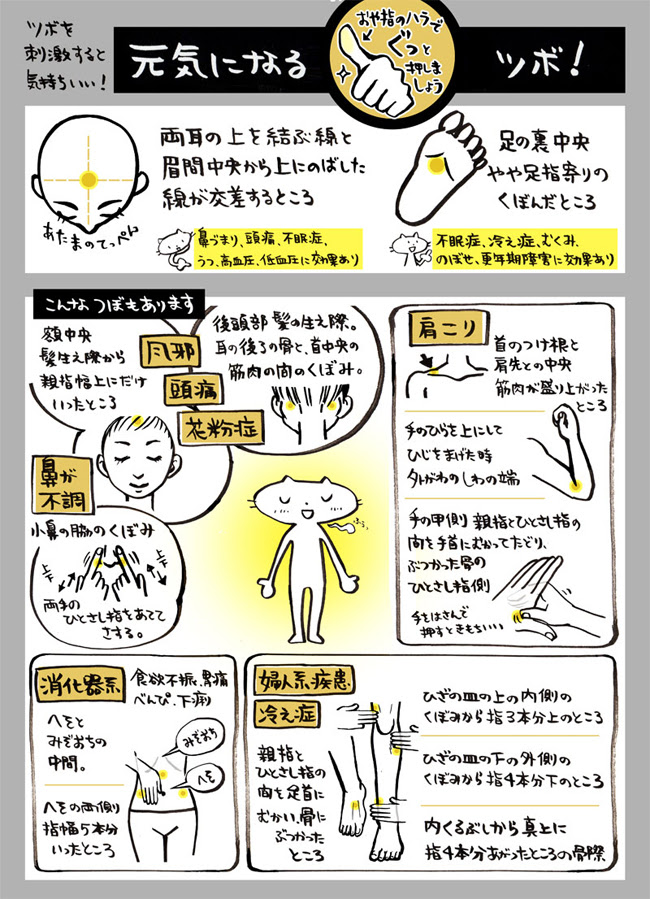 ツボを
刺激すると
気持ちいい!
元気になる
おや指のハラで
ぐっと
押しま
しょう
ツボ!
両耳の上を結ぶ線と
眉間中央から上にのばした
線が交差するところ
あたまのてっぺん
鼻づまり、頭痛、不眠症、
うつ、高血圧、低血圧に効果あり
足の裏中央
やや足指寄りの
くぼんだところ
不眠症、冷え症、むくみ、
のぼせ、更年期障害に効果あり
こんなつぼもあります
額中央
髪生え際から
親指幅上にだけ
いったところ
風邪
頭痛
花粉症
後頭部 髪の生え際。
耳の後ろの骨と、首中央の
筋肉の間のくぼみ。
鼻が
不調
小鼻の脇のくぼみ
上下
上下
両手の
ひとさし指をあてて
さする。
ふぅっ
肩こり
首のつけ根と
肩先との中央
筋肉が盛り上がった
ところ
手のひらを上にして
ひじをまげた時
外がわのしわの端
手の甲側 親指とひとさし指の
間を手首にむかってたどり、
ぶつかった骨の
ひとさし指側
手をはさんで
押すときもちいい
消化器系
食欲不振、胃痛
べんぴ、下痢
へそと
みぞおちの
中間。
みぞおち
へそ
へその両側
指幅5本分
いったところ
婦人系疾患
冷え症
親指と
ひとさし指の
間を足首に
むかい、骨に
ぶつかった
ところ
ひざの皿の上の内側の
くぼみから指3本分上のところ
ひざの皿の下の外側の
くぼみから指4本分下のところ
内くるぶしから真上に
指4本分あがったところの骨際